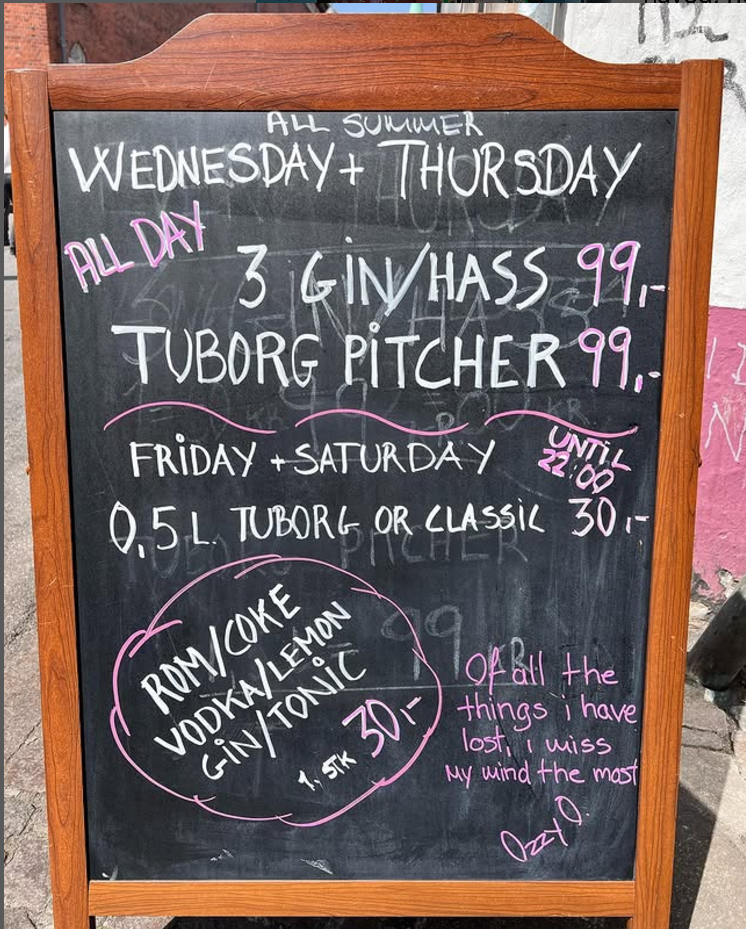 ALL SUMMER
WEDNESDAY + THURSDAY
ALL DAY
3 GIN/HASS 99,-
TUBORG PITCHER 99,-
FRIDAY + SATURDAY UNTIL 22:00
0,5 L. TUBORG OR CLASSIC 30,-
ROM/COKE
VODKA/LEMON
GIN/TONIC
1. STK 30,-
Of all the
things i have
lost, i miss
My mind the most
Ozzy O.